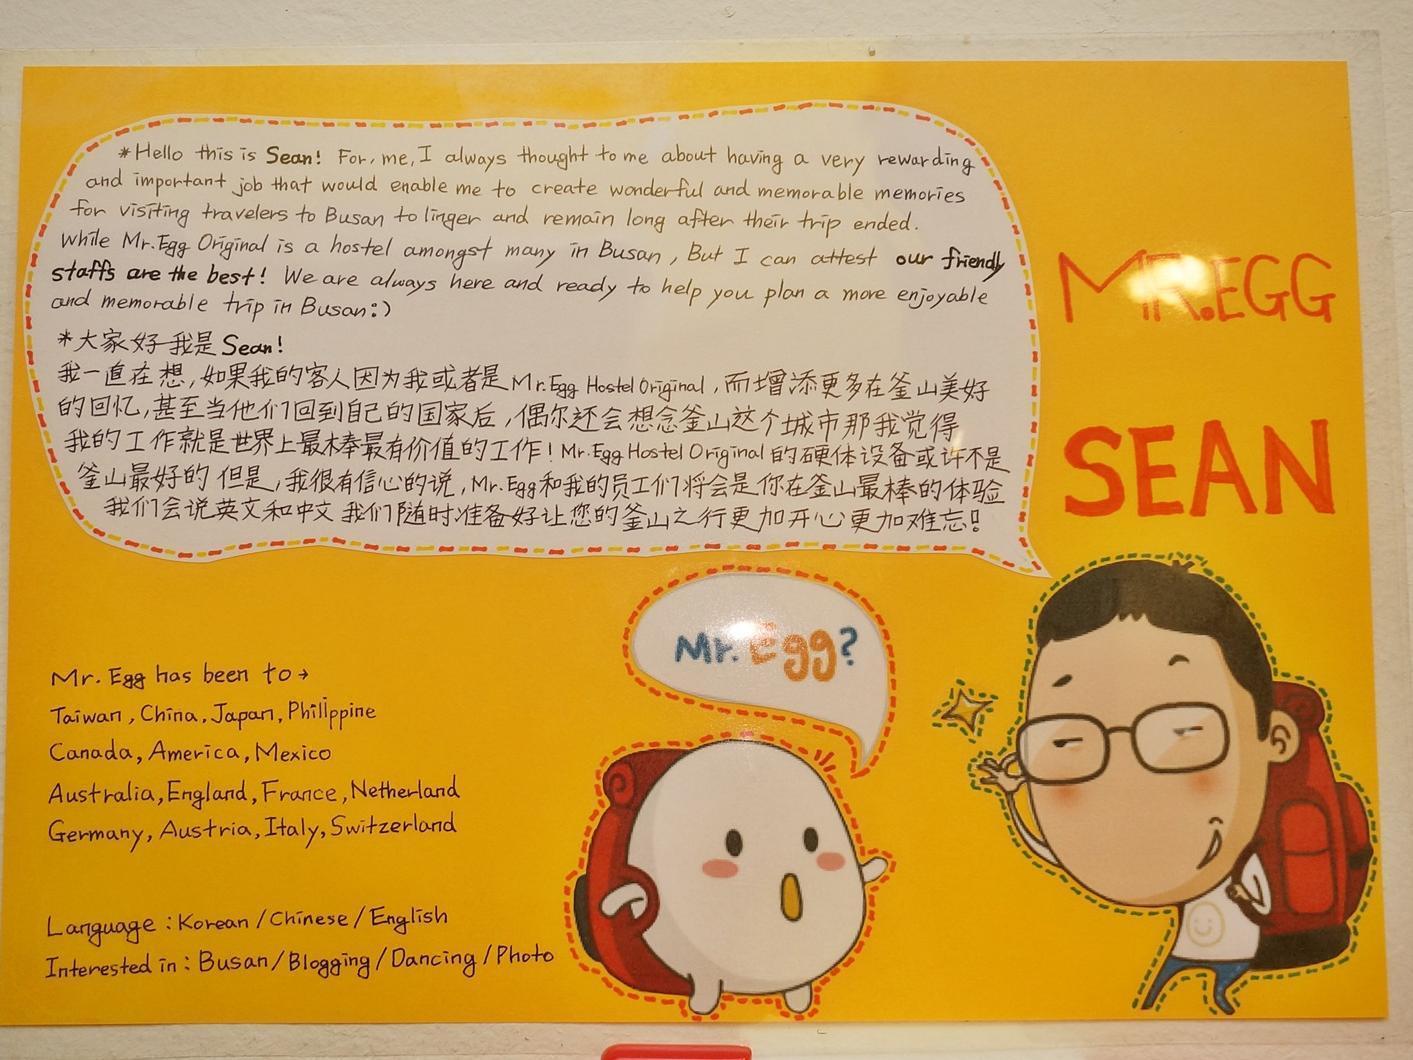 *Hello this is Sean! For, me, I always thought to me about having a very rewarding
and important job that would enable me to create wonderful and memorable memories
for visiting travelers to Busan to linger and remain long after their trip ended.
While Mr.Egg Original is a hostel amongst many in Busan, But I can attest our friendly
staffs are the best! We are always here and ready to help you plan a more enjoyable
and memorable trip in Busan:)
*大家好 我是 Sean!
我一直在想,如果我的客人因为我或者是 Mr.Egg Hostel Original,而增添更多在釜山美好
的回忆,甚至当他们回到自己的国家后,偶尔还会想念釜山这个城市那我觉得
我的工作就是世界上最棒最有价值的工作! Mr.Egg Hostel Original 的硬体设备或许不是
釜山最好的 但是,我很有信心的说, Mr.Egg和我的员工们将会是你在釜山最棒的体验
我们会说英文和中文 我们随时准备好让您的釜山之行更加开心更加难忘!
MR.EGG
SEAN
Mr. Egg?
Mr. Egg has been to →
Taiwan, China, Japan, Philippine
Canada, America, Mexico
Australia, England, France, Netherland
Germany, Austria, Italy, Switzerland
Language : Korean / Chinese / English
Interested in : Busan / Blogging / Dancing / Photo